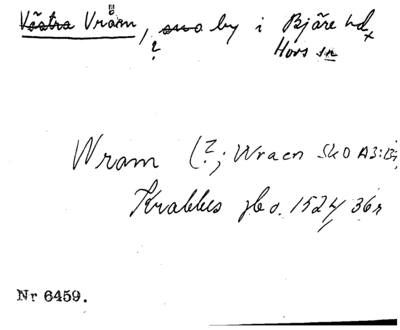 Västra Vram, ? by i Bjäre hd
Hovs sn
Wram (?; Wraen SkO A3:13
Krabbes jb o. 1524 36r
Nr 6459.